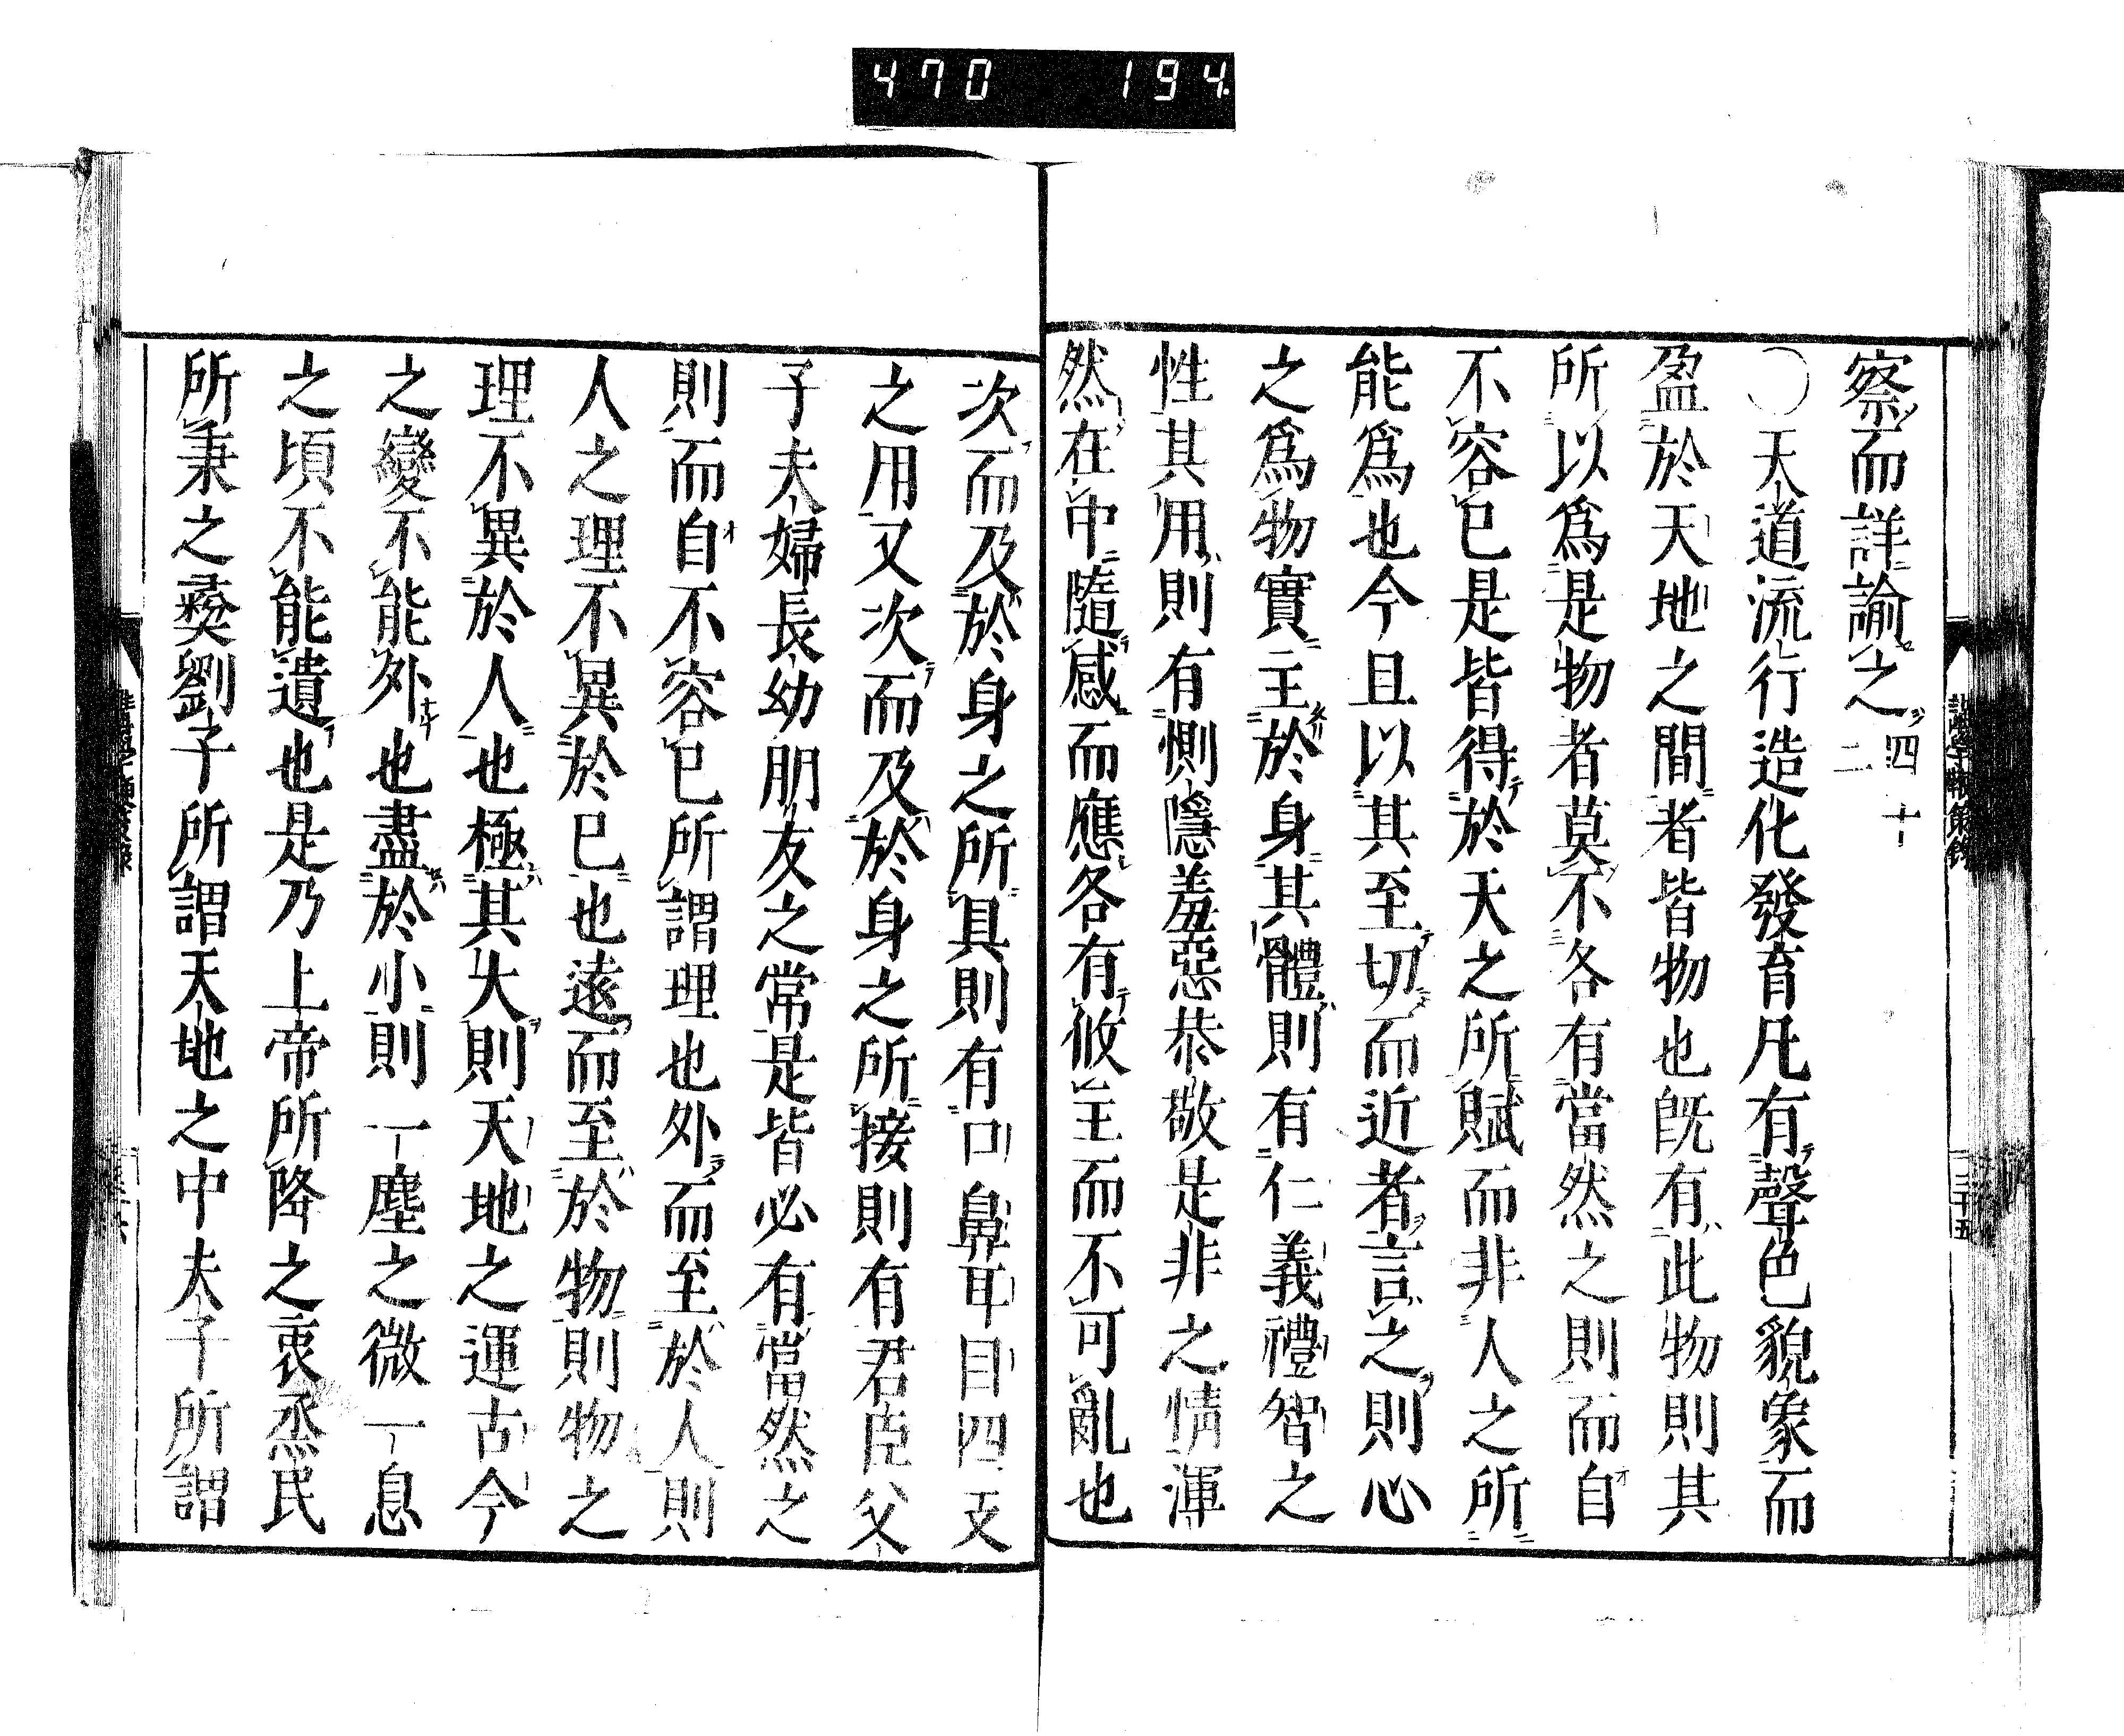 470 194
察而詳諭之四十二
〇天道流行造化發育凡有聲色貌象而
盈於天地之間者皆物也旣有此物則其
所以爲是物者莫不各有當然之則而自
不容已是皆得於天之所賦而非人之所
能爲也今且以其至切而近者言之則心
之爲物實主於身其體則有仁義禮智之
性其用則有惻隱羞惡恭敬是非之情渾
然在中隨感而應各有攸主而不可亂也
次而及於身之所具則有口鼻耳目四支
之用又次而及於身之所接則有君臣父
子夫婦長幼朋友之常是皆必有當然之
則而自不容已所謂理也外而至於人則
人之理不異於已也遠而至於物則物之
理不異於人也極其大則天地之運古今
之變不能外也盡於小則一塵之微一息
之頃不能遺也是乃上帝所降之衷烝民
所秉之彝劉子所謂天地之中夫子所謂